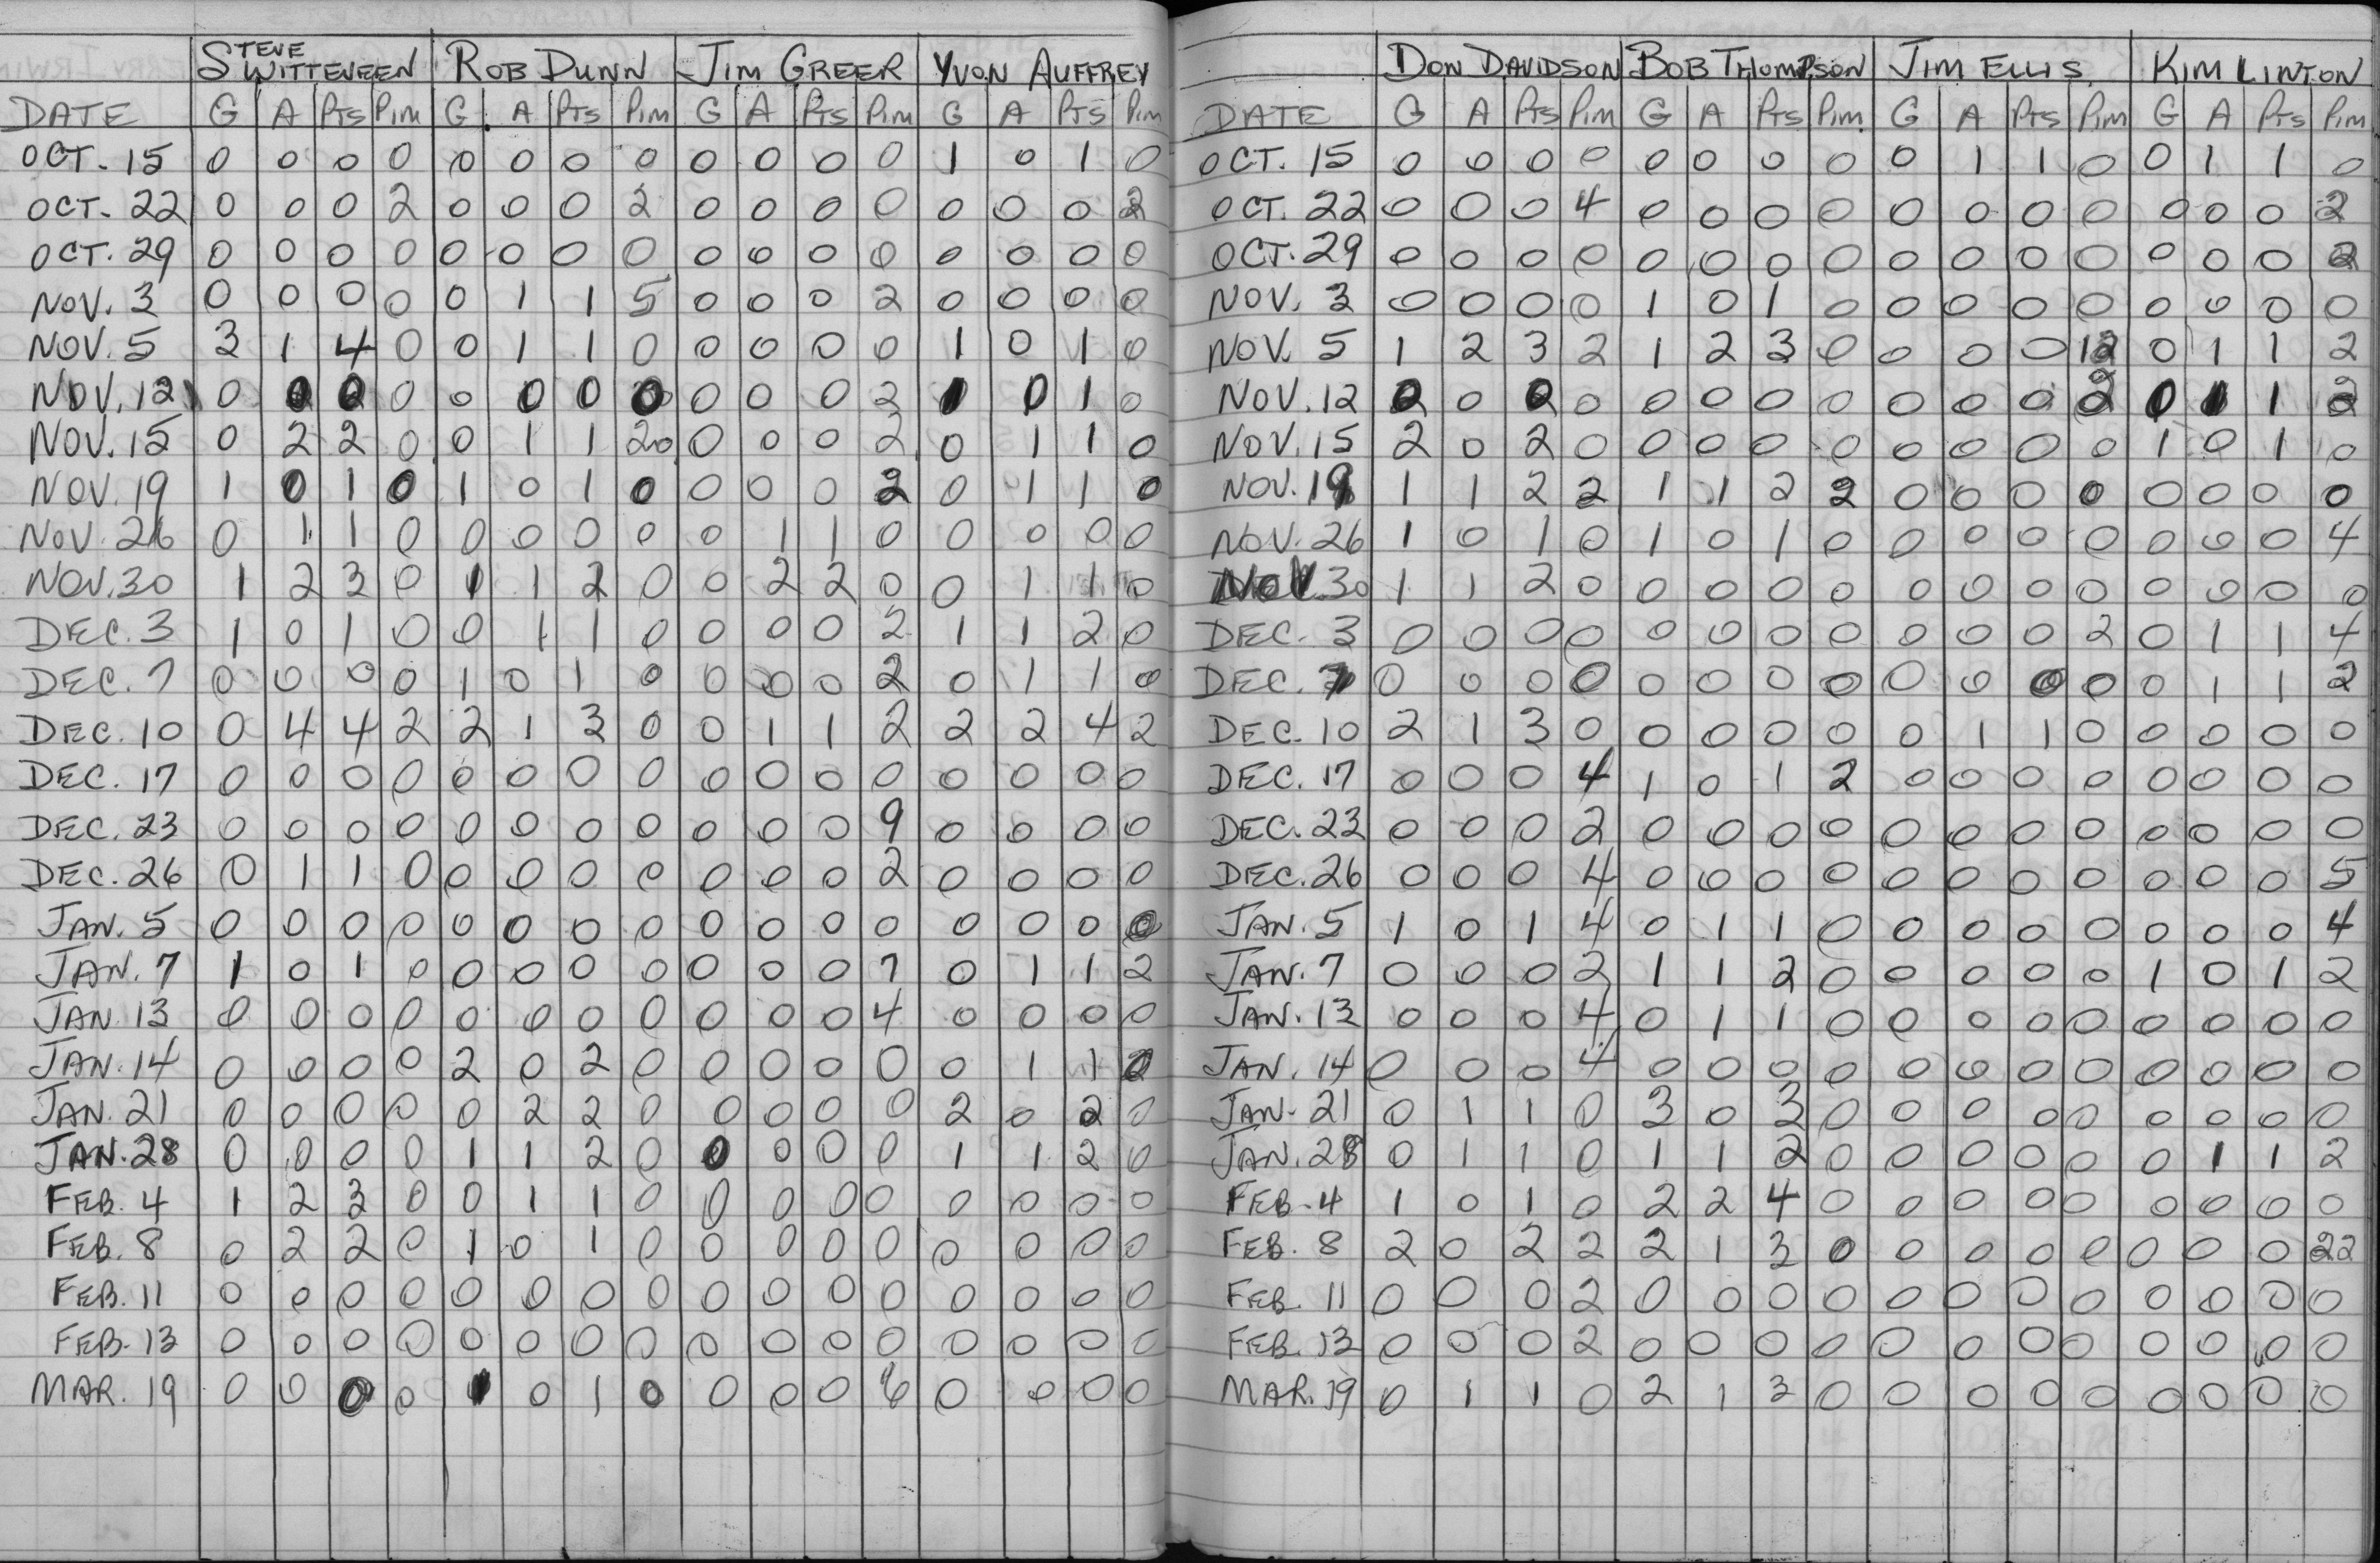 STEVE WITTEVEEN ROB DUNN JIM GREER YVON AUFFREY
DATE G A Pts Pim G A Pts Pim G A Pts Pim G A Pts Pim
OCT. 15 0 0 0 0 0 0 0 0 0 0 0 0 1 0 1 0
OCT. 22 0 0 0 2 0 0 0 2 0 0 0 0 0 0 0 2
OCT. 29 0 0 0 0 0 0 0 0 0 0 0 0 0 0 0 0
NOV. 3 0 0 0 0 0 1 1 5 0 0 0 2 0 0 0 0
NOV. 5 3 1 4 0 0 1 1 0 0 0 0 0 1 0 1 0
NOV. 12 0 0 0 0 0 0 0 0 0 0 0 2 1 0 1 0
NOV. 15 0 2 2 0 0 1 1 20 0 0 0 2 0 1 1 0
NOV. 19 1 0 1 0 1 0 1 0 0 0 0 2 0 1 1 0
NOV. 26 0 1 1 0 0 0 0 0 0 1 1 0 0 0 0 0
NOV. 30 1 2 3 0 1 1 2 0 0 2 2 0 0 1 1 0
DEC. 3 1 0 1 0 0 1 1 0 0 0 0 2 1 1 2 0
DEC. 7 0 0 0 0 1 0 1 0 0 0 0 2 0 1 1 0
DEC. 10 0 4 4 2 2 1 3 0 0 1 1 2 2 2 4 2
DEC. 17 0 0 0 0 0 0 0 0 0 0 0 0 0 0 0 0
DEC. 23 0 0 0 0 0 0 0 0 0 0 0 9 0 0 0 0
DEC. 26 0 1 1 0 0 0 0 0 0 0 0 2 0 0 0 0
JAN. 5 0 0 0 0 0 0 0 0 0 0 0 0 0 0 0 0
JAN. 7 1 0 1 0 0 0 0 0 0 0 0 7 0 1 1 2
JAN. 13 0 0 0 0 0 0 0 0 0 0 0 4 0 0 0 0
JAN. 14 0 0 0 0 2 0 2 0 0 0 0 0 0 1 1 2
JAN. 21 0 0 0 0 0 2 2 0 0 0 0 0 2 0 2 0
JAN. 28 0 0 0 0 1 1 2 0 0 0 0 0 1 1 2 0
FEB. 4 1 2 3 0 0 1 1 0 0 0 0 0 0 0 0 0
FEB. 8 0 2 2 0 1 0 1 0 0 0 0 0 0 0 0 0
FEB. 11 0 0 0 0 0 0 0 0 0 0 0 0 0 0 0 0
FEB. 13 0 0 0 0 0 0 0 0 0 0 0 0 0 0 0 0
MAR. 19 0 0 0 0 1 0 1 0 0 0 0 6 0 0 0 0
DON DAVIDSON BOB THOMPSON JIM ELLIS KIM LINTON
DATE G A Pts Pim G A Pts Pim G A Pts Pim G A Pts Pim
OCT. 15 0 0 0 0 0 0 0 0 0 1 1 0 0 1 1 0
OCT. 22 0 0 0 4 0 0 0 0 0 0 0 0 0 0 0 2
OCT. 29 0 0 0 0 0 0 0 0 0 0 0 0 0 0 0 2
NOV. 3 0 0 0 0 1 0 1 0 0 0 0 0 0 0 0 0
NOV. 5 1 2 3 2 1 2 3 0 0 0 0 12 0 1 1 2
NOV. 12 0 0 0 0 0 0 0 0 0 0 0 2 0 1 1 2
NOV. 15 2 0 2 0 0 0 0 0 0 0 0 0 1 0 1 0
NOV. 19 1 1 2 2 1 1 2 2 0 0 0 0 0 0 0 0
NOV. 26 1 0 1 0 1 0 1 0 0 0 0 0 0 0 0 4
NOV. 30 1 1 2 0 0 0 0 0 0 0 0 0 0 0 0 0
DEC. 3 0 0 0 0 0 0 0 0 0 0 0 2 0 1 1 4
DEC. 7 0 0 0 0 0 0 0 0 0 0 0 0 0 1 1 2
DEC. 10 2 1 3 0 0 0 0 0 0 1 1 0 0 0 0 0
DEC. 17 0 0 0 4 1 0 1 2 0 0 0 0 0 0 0 0
DEC. 23 0 0 0 2 0 0 0 0 0 0 0 0 0 0 0 0
DEC. 26 0 0 0 4 0 0 0 0 0 0 0 0 0 0 0 5
JAN. 5 1 0 1 4 0 1 1 0 0 0 0 0 0 0 0 4
JAN. 7 0 0 0 2 1 1 2 0 0 0 0 0 1 0 1 2
JAN. 13 0 0 0 4 0 1 1 0 0 0 0 0 0 0 0 0
JAN. 14 0 0 0 4 0 0 0 0 0 0 0 0 0 0 0 0
JAN. 21 0 1 1 0 3 0 3 0 0 0 0 0 0 0 0 0
JAN. 28 0 1 1 0 1 1 2 0 0 0 0 0 0 1 1 2
FEB. 4 1 0 1 0 2 2 4 0 0 0 0 0 0 0 0 0
FEB. 8 2 0 2 2 2 1 3 0 0 0 0 0 0 0 0 22
FEB. 11 0 0 0 2 0 0 0 0 0 0 0 0 0 0 0 0
FEB. 13 0 0 0 2 0 0 0 0 0 0 0 0 0 0 0 0
MAR. 19 0 1 1 0 2 1 3 0 0 0 0 0 0 0 0 0